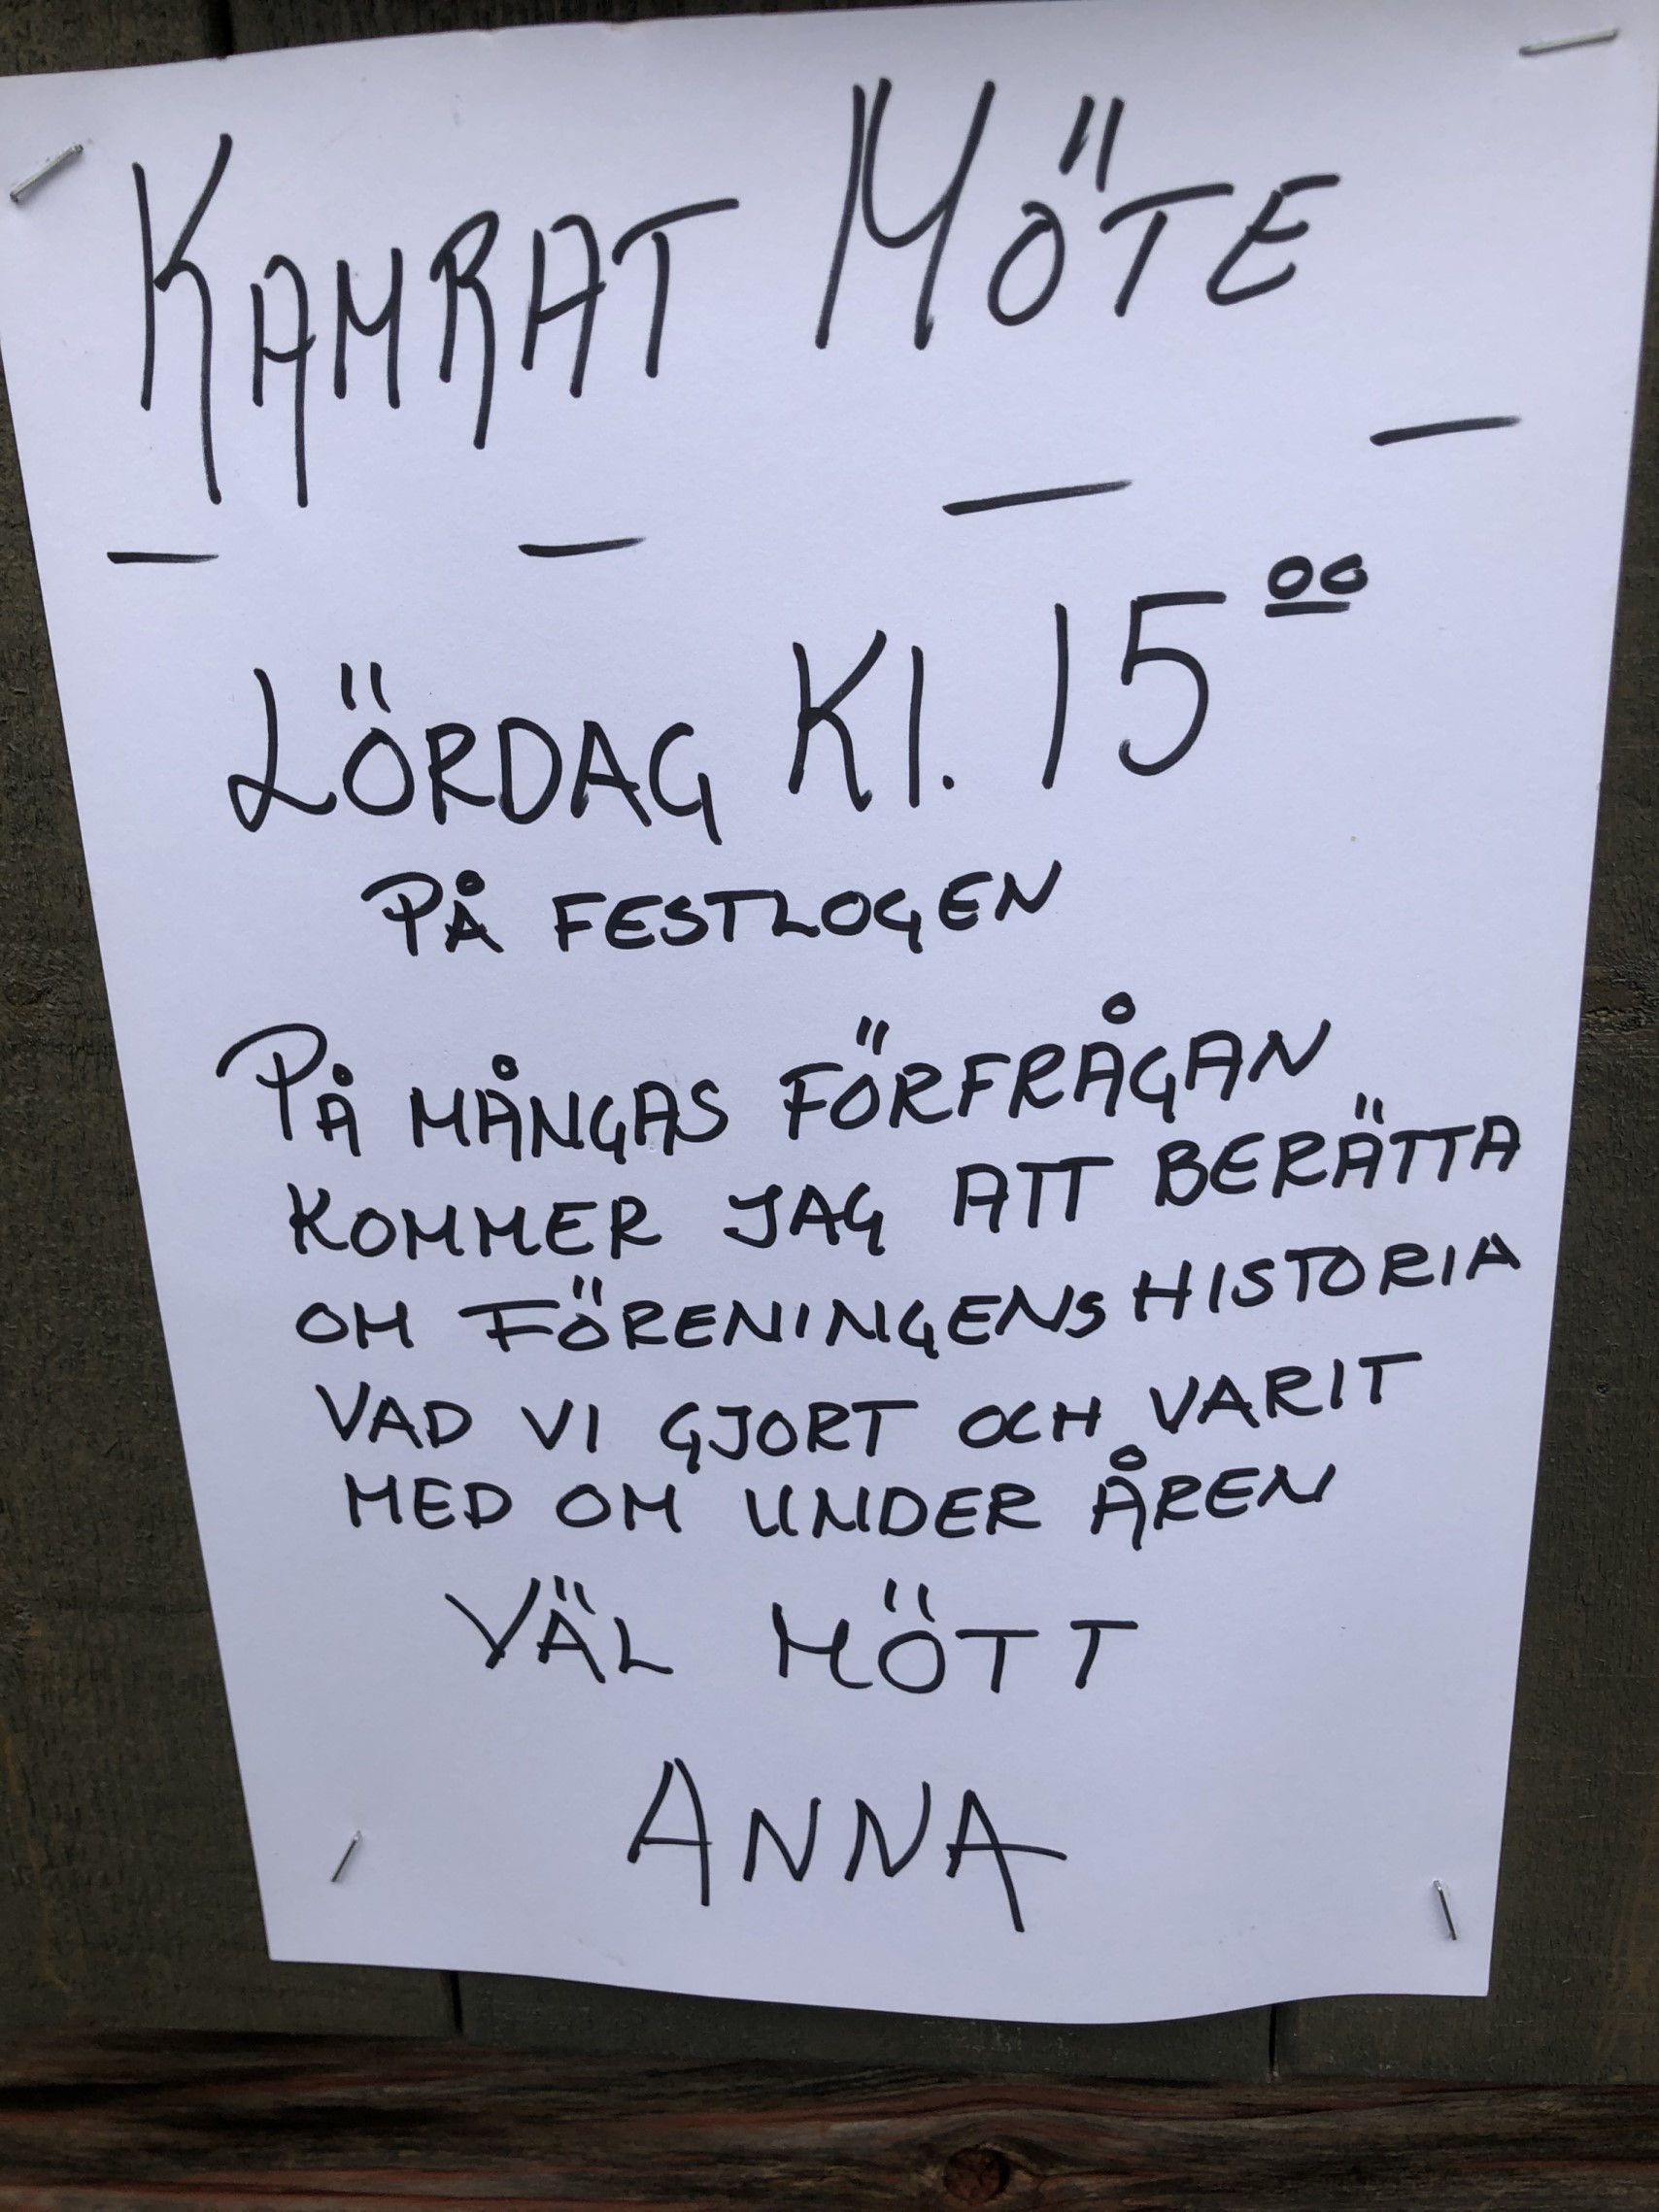 KAMRAT MÖTE
— — — —
LÖRDAG Kl. 15⁰⁰
PÅ FESTLOGEN
PÅ MÅNGAS FÖRFRÅGAN
KOMMER JAG ATT BERÄTTA
OM FÖRENINGENS HISTORIA
VAD VI GJORT OCH VARIT
MED OM UNDER ÅREN
VÄL MÖTT
ANNA